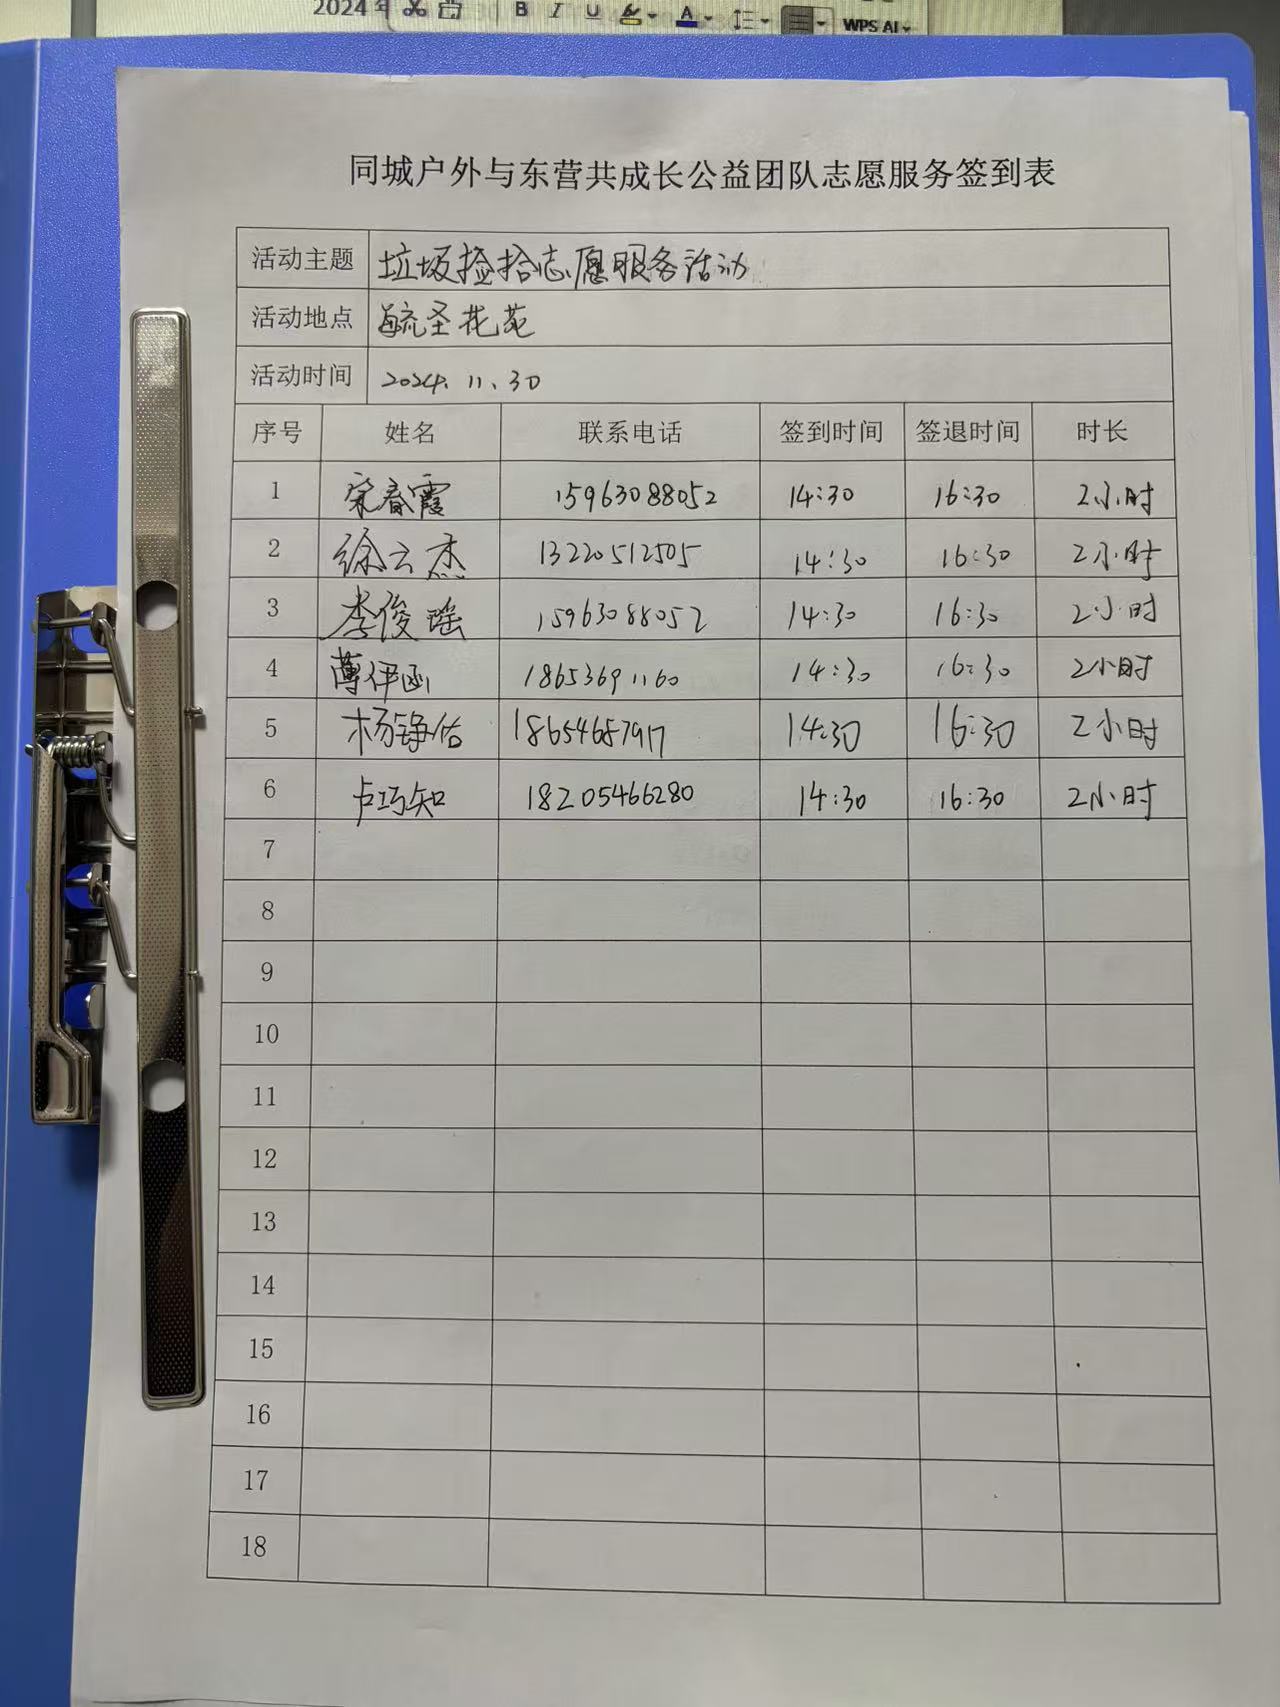 2024年
B I U A WPS AI
同城户外与东营共成长公益团队志愿服务签到表
活动主题 垃圾捡拾志愿服务活动
活动地点 毓圣花苑
活动时间 2024.11.30
序号 姓名 联系电话 签到时间 签退时间 时长
1 宋春霞 15963088052 14:30 16:30 2小时
2 徐云杰 13220512505 14:30 16:30 2小时
3 李俊瑶 15963088052 14:30 16:30 2小时
4 薄伊函 18653691160 14:30 16:30 2小时
5 杨铮佑 18654687917 14:30 16:30 2小时
6 卢巧知 18205466280 14:30 16:30 2小时
7
8
9
10
11
12
13
14
15
16
17
18